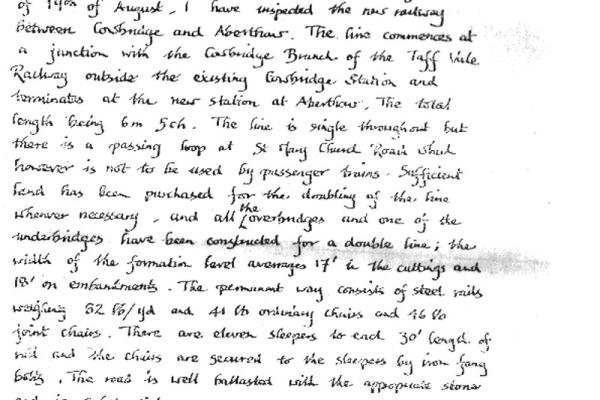 of 19th of August, I have inspected the new railway
between Cowbridge and Aberthaw. The line commences at
a junction with the Cowbridge Branch of the Taff Vale
Railway outside the existing Cowbridge Station and
terminates at the new station at Aberthaw. The total
length being 6m 5ch. The line is single throughout but
there is a passing loop at St Mary Church Road which
however is not to be used by passenger trains. Sufficient
land has been purchased for the doubling of the line
whenever necessary, and all the overbridges and one of the
underbridges have been constructed for a double line; the
width of the formation level averages 17' in the cuttings and
18' on embankments. The permanent way consists of steel rails
weighing 82 lb/yd and 41 lb ordinary chairs and 46 lb
joint chairs. There are eleven sleepers to each 30' length of
rail and the chairs are secured to the sleepers by iron fang
bolts. The road is well ballasted with the appropriate stone